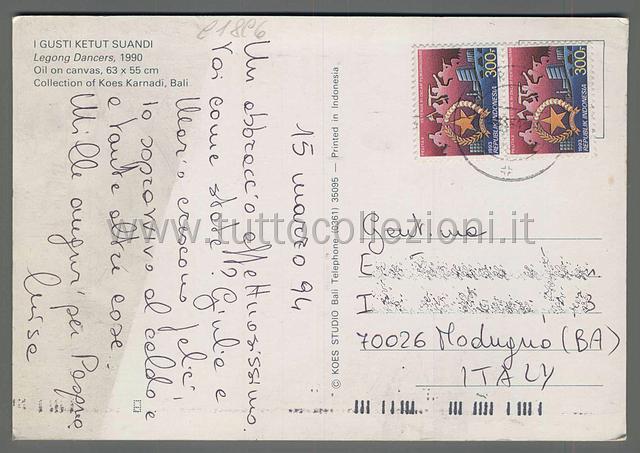 I GUSTI KETUT SUANDI
Legong Dancers, 1990
Oil on canvas, 63 x 55 cm
Collection of Koes Karnadi, Bali
15 marzo 94
Un abbraccio affettuosissimo.
Voi come state? Giulio e
Mario crescono felici
Io sopravvivo al caldo e
e tante altre cose.
Mille auguri per Pasqua
Luisa
© KOES STUDIO Bali Telephone (0361) 35095 — Printed in Indonesia
300r
REPUBLIK INDONESIA
1993
300r
REPUBLIK INDONESIA
1993
Gent.ma
E
I
70026 Modugno (BA)
ITALY
www.tuttocollezioni.it